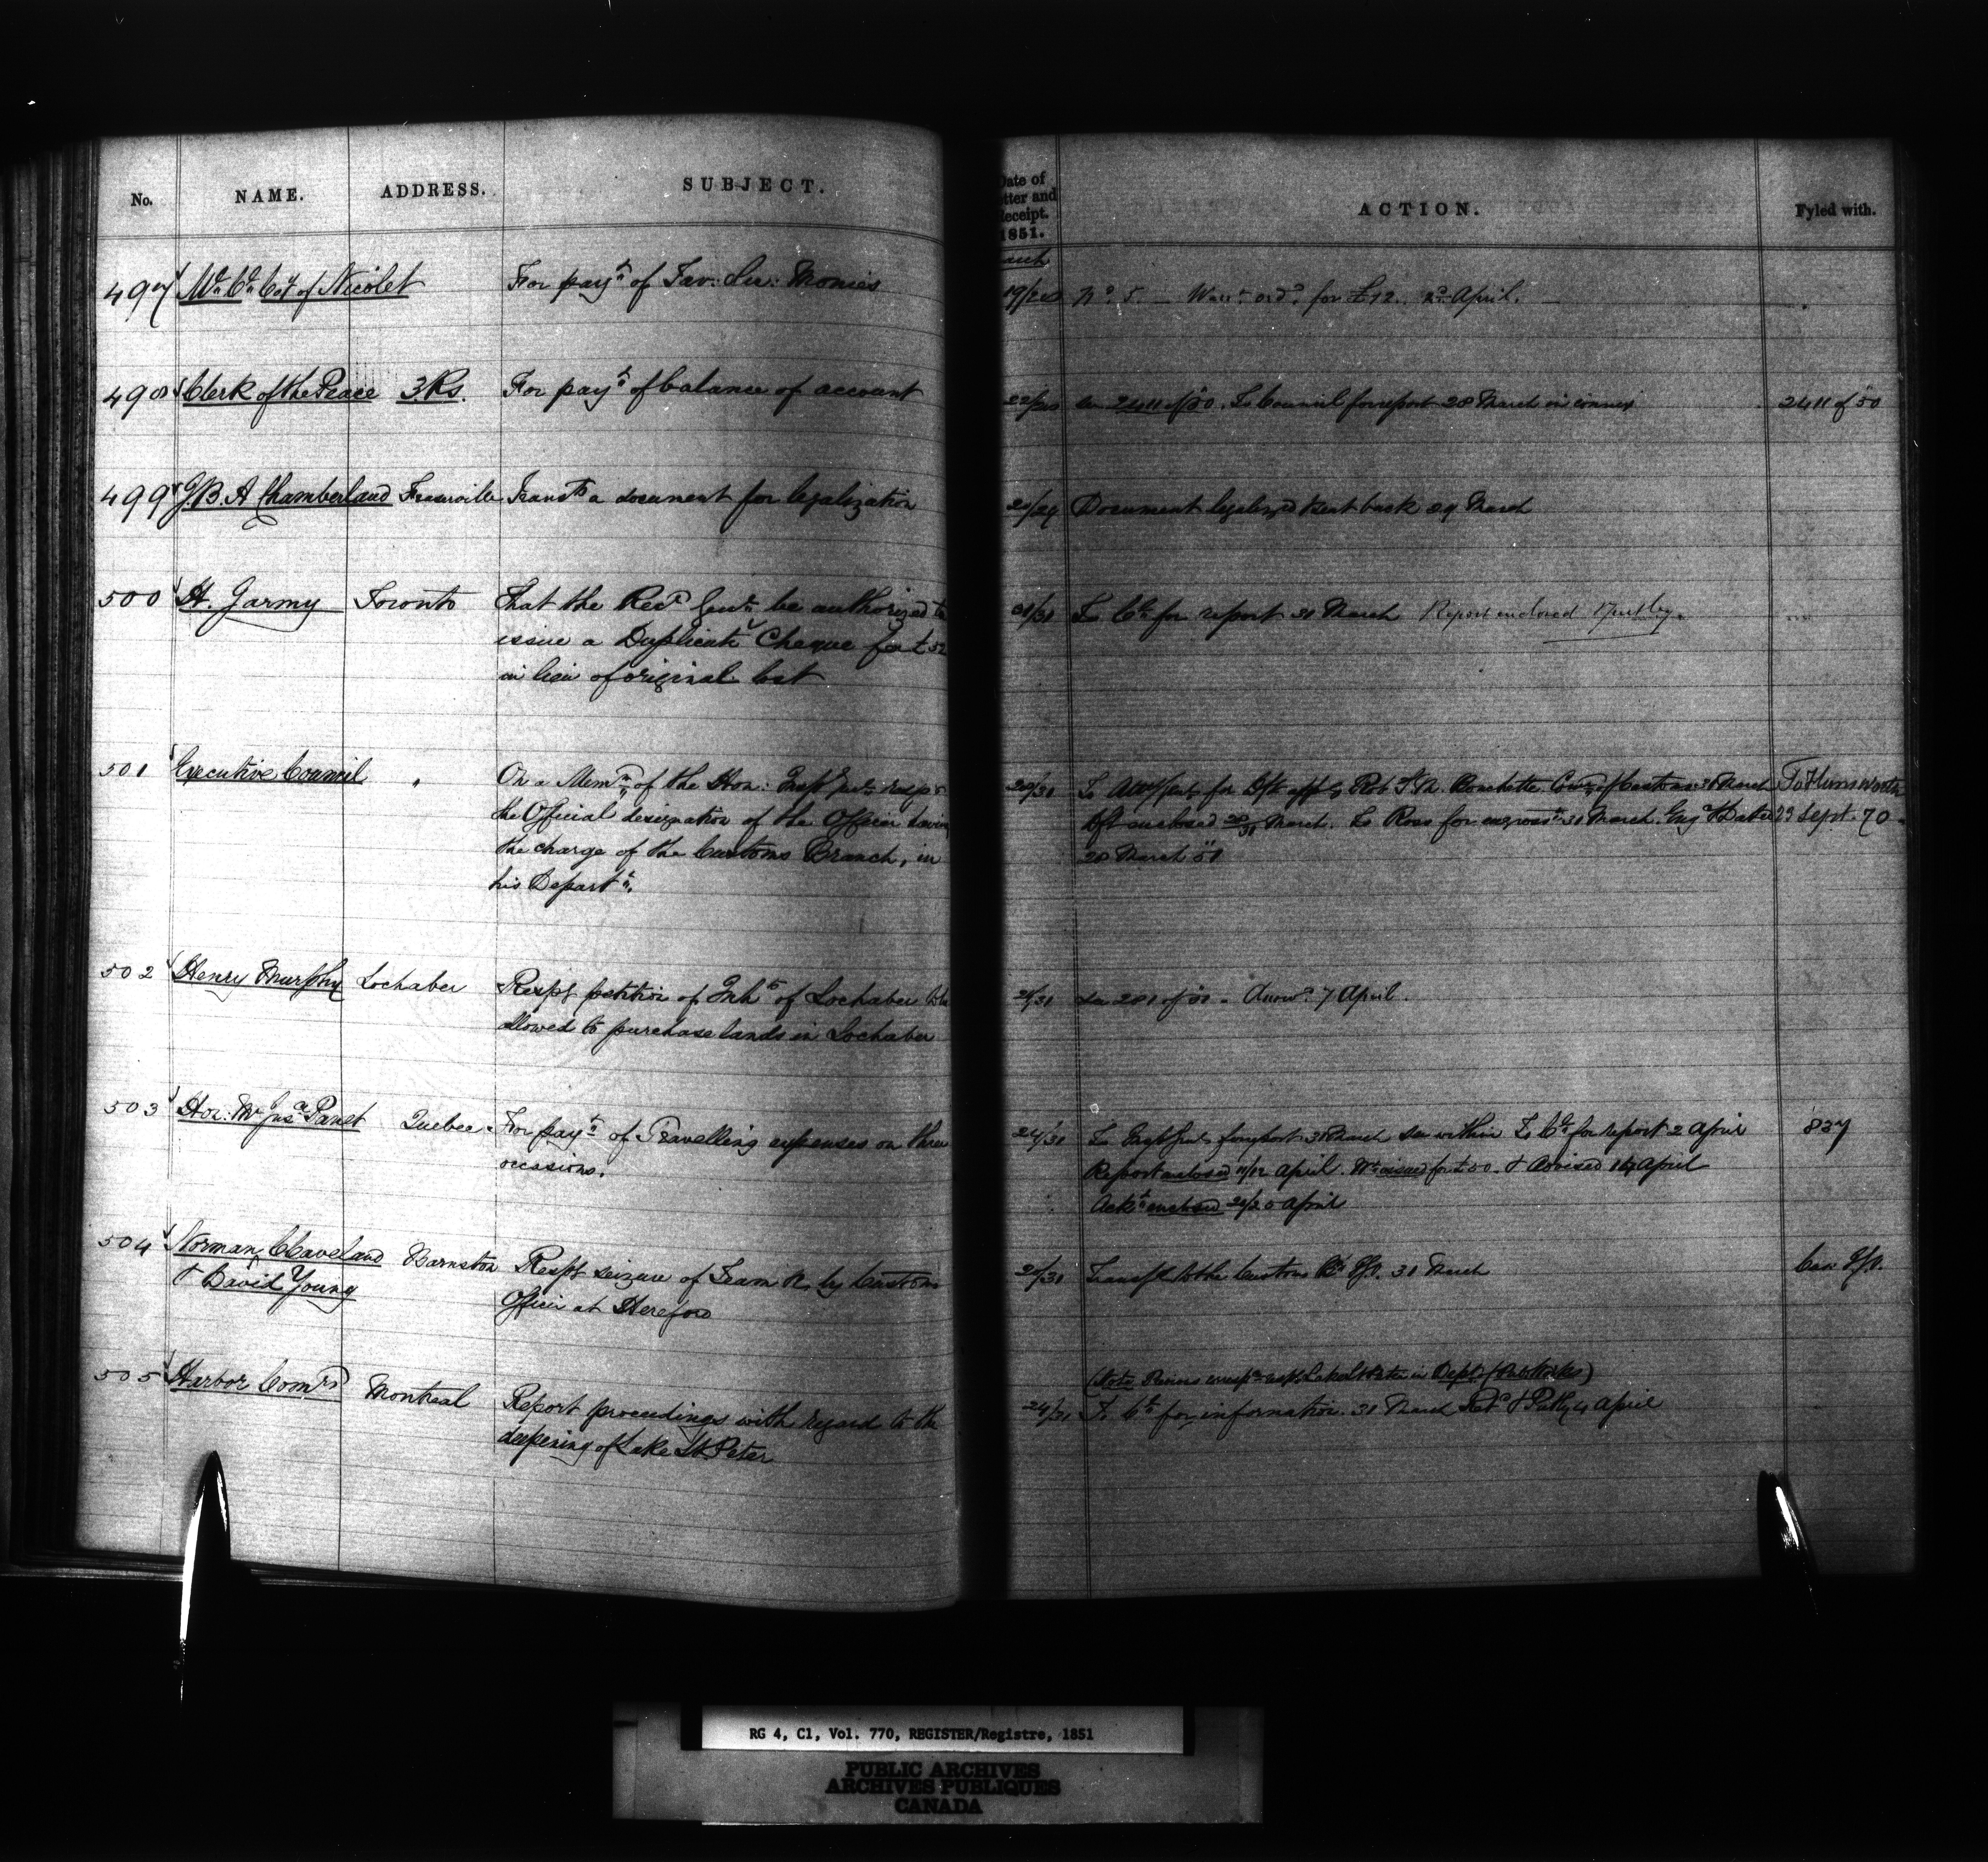 No. NAME. ADDRESS. SUBJECT.
497 Mn Cn Coy of Nicolet For payt of Tav: Lic: Monies
498 Clerk of the Peace 3 Rs. For payt of balance of account
499 J.B.A Chamberland Fraserville Transts a document for legalization
500 H. Jarmy Toronto That the Recr Genl be authorized to
issue a Duplicate Cheque for £52
in lieu of original lost
501 Executive Council " On a Memm of the Hon: Insp Genl resps
the Official designation of the Officer having
the charge of the Customs Branch, in
his Departt.
502 Henry Murphy Lochaber Respg petition of Inhts of Lochaber to be
allowed to purchase lands in Lochaber
503 Hon: Mr Jusce Panet Quebec For payt of Travelling expenses on three
occasions.
504 Norman Cleaveland Barnston Respg seizure of Team by Customs
& David Young Officer at Hereford
505 Harbor Comrs Montreal Report proceedings with regard to the
deepening of Lake St Peter
Date of
tter and
eceipt.
1851.
ACTION. Fyled with.
arch
19/28 No 5. Warrt ordd for £12. 2d April.
22/28 See 2411 of 50. To Council for report 28 March in connex 2411 of 50
24/29 Document legalized & sent back 29 March
31/31 To Cl for report 31 March Report enclored
28/31 To Atty Genl for Dft appt of Rob S. M. Bouchette Comr of Customs 31 March To Himsworth
Dft enclosed 28/31 March. To Ross for engrosst 31 March. 23 Sept. 70.
28 March 51
25/31 See 281 of 50. Answd 7 April.
24/31 To Insp Genl for report 31 March See within To Cl for report 2 April 837
Report enclosed 11/12 April. Wt issued for £50. & Advised 14 April
Ackt enclosed April
25/31 Transfd to the Customs Bh 31 March
(Note Previous corresp resps Lake St Peter in Dept (Pub Works)
24/31 To Cl for information. 31 March April
RG 4, C1, Vol. 770, REGISTER/Registre, 1851
PUBLIC ARCHIVES
ARCHIVES PUBLIQUES
CANADA